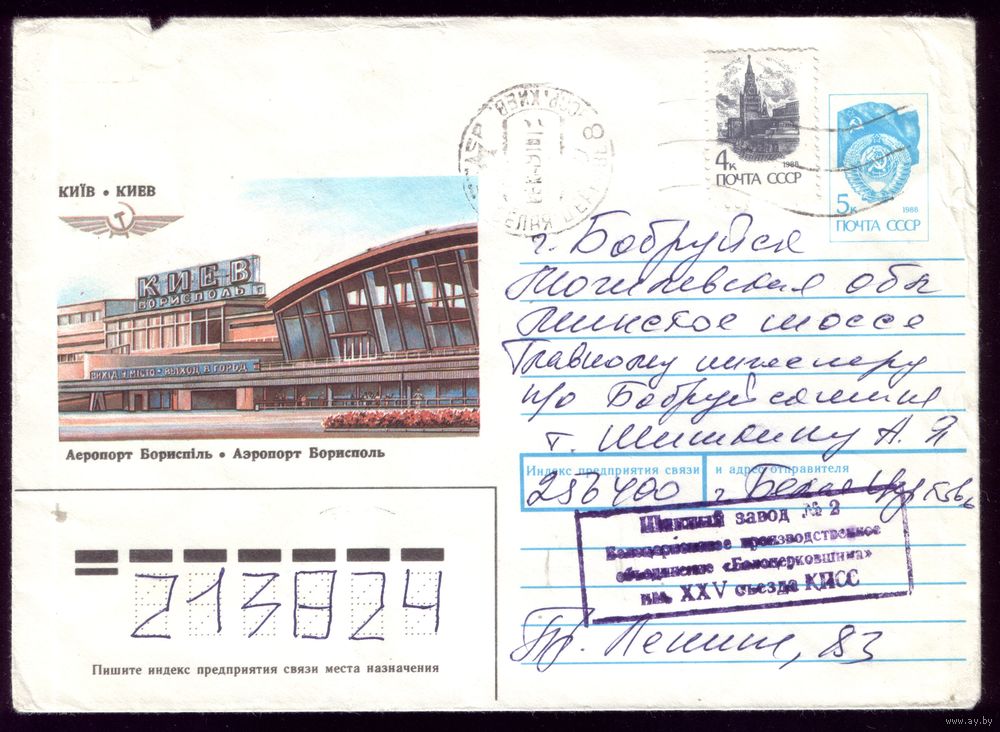 КИЇВ • КИЕВ
КИЕВ
БОРИСПОЛЬ
ВИХІД У МІСТО • ВЫХОД В ГОРОД
Аеропорт Бориспіль • Аэропорт Борисполь
4к
1988
ПОЧТА СССР
5к
1988
ПОЧТА СССР
г. Бобруйск
Могилевская обл
Минское шоссе
Главному инженеру
п/о Бобруйскшина
т. Шишкину А. Я
Индекс предприятия связи и адрес отправителя
256400 г Белая Церковь
Шинный завод № 2
Белоцерковское производственное
объединение «Белоцерковшина»
им. XXV съезда КПСС
Пр. Ленина, 83
213824
Пишите индекс предприятия связи места назначения
www.ay.by